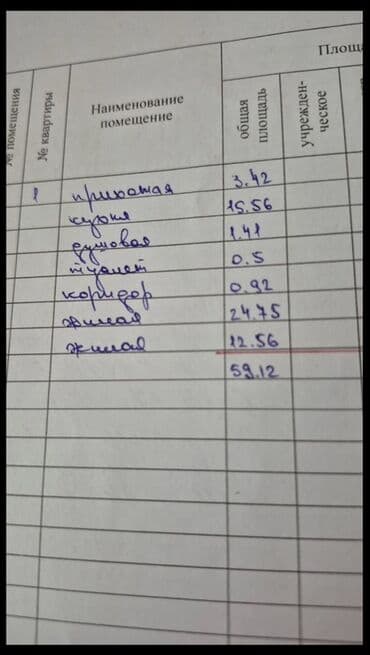 Площа
№ помещения
№ квартиры
Наименование
помещение
общая
площадь
учрежден-
ческое
1 прихожая 3.42
кухня 15.56
душевая 1.41
туалет 0.5
коридор 0.92
жилая 24.75
жилая 12.56
59.12